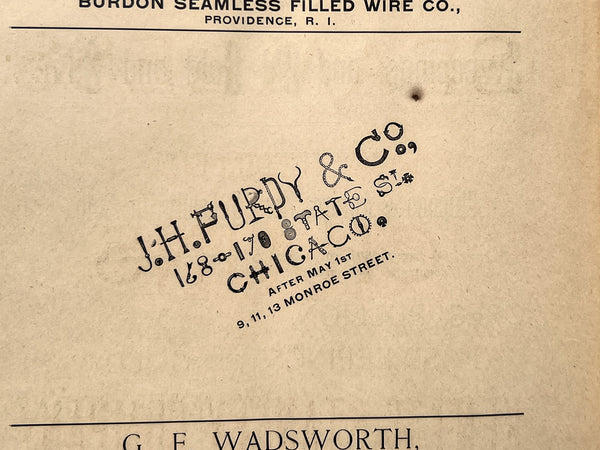 BURDON SEAMLESS FILLED WIRE CO.,
PROVIDENCE, R. I.
J.H. PURDY & CO.,
168-170 STATE ST.
CHICAGO.
AFTER MAY 1ST
9, 11, 13 MONROE STREET.
G. F. WADSWORTH,